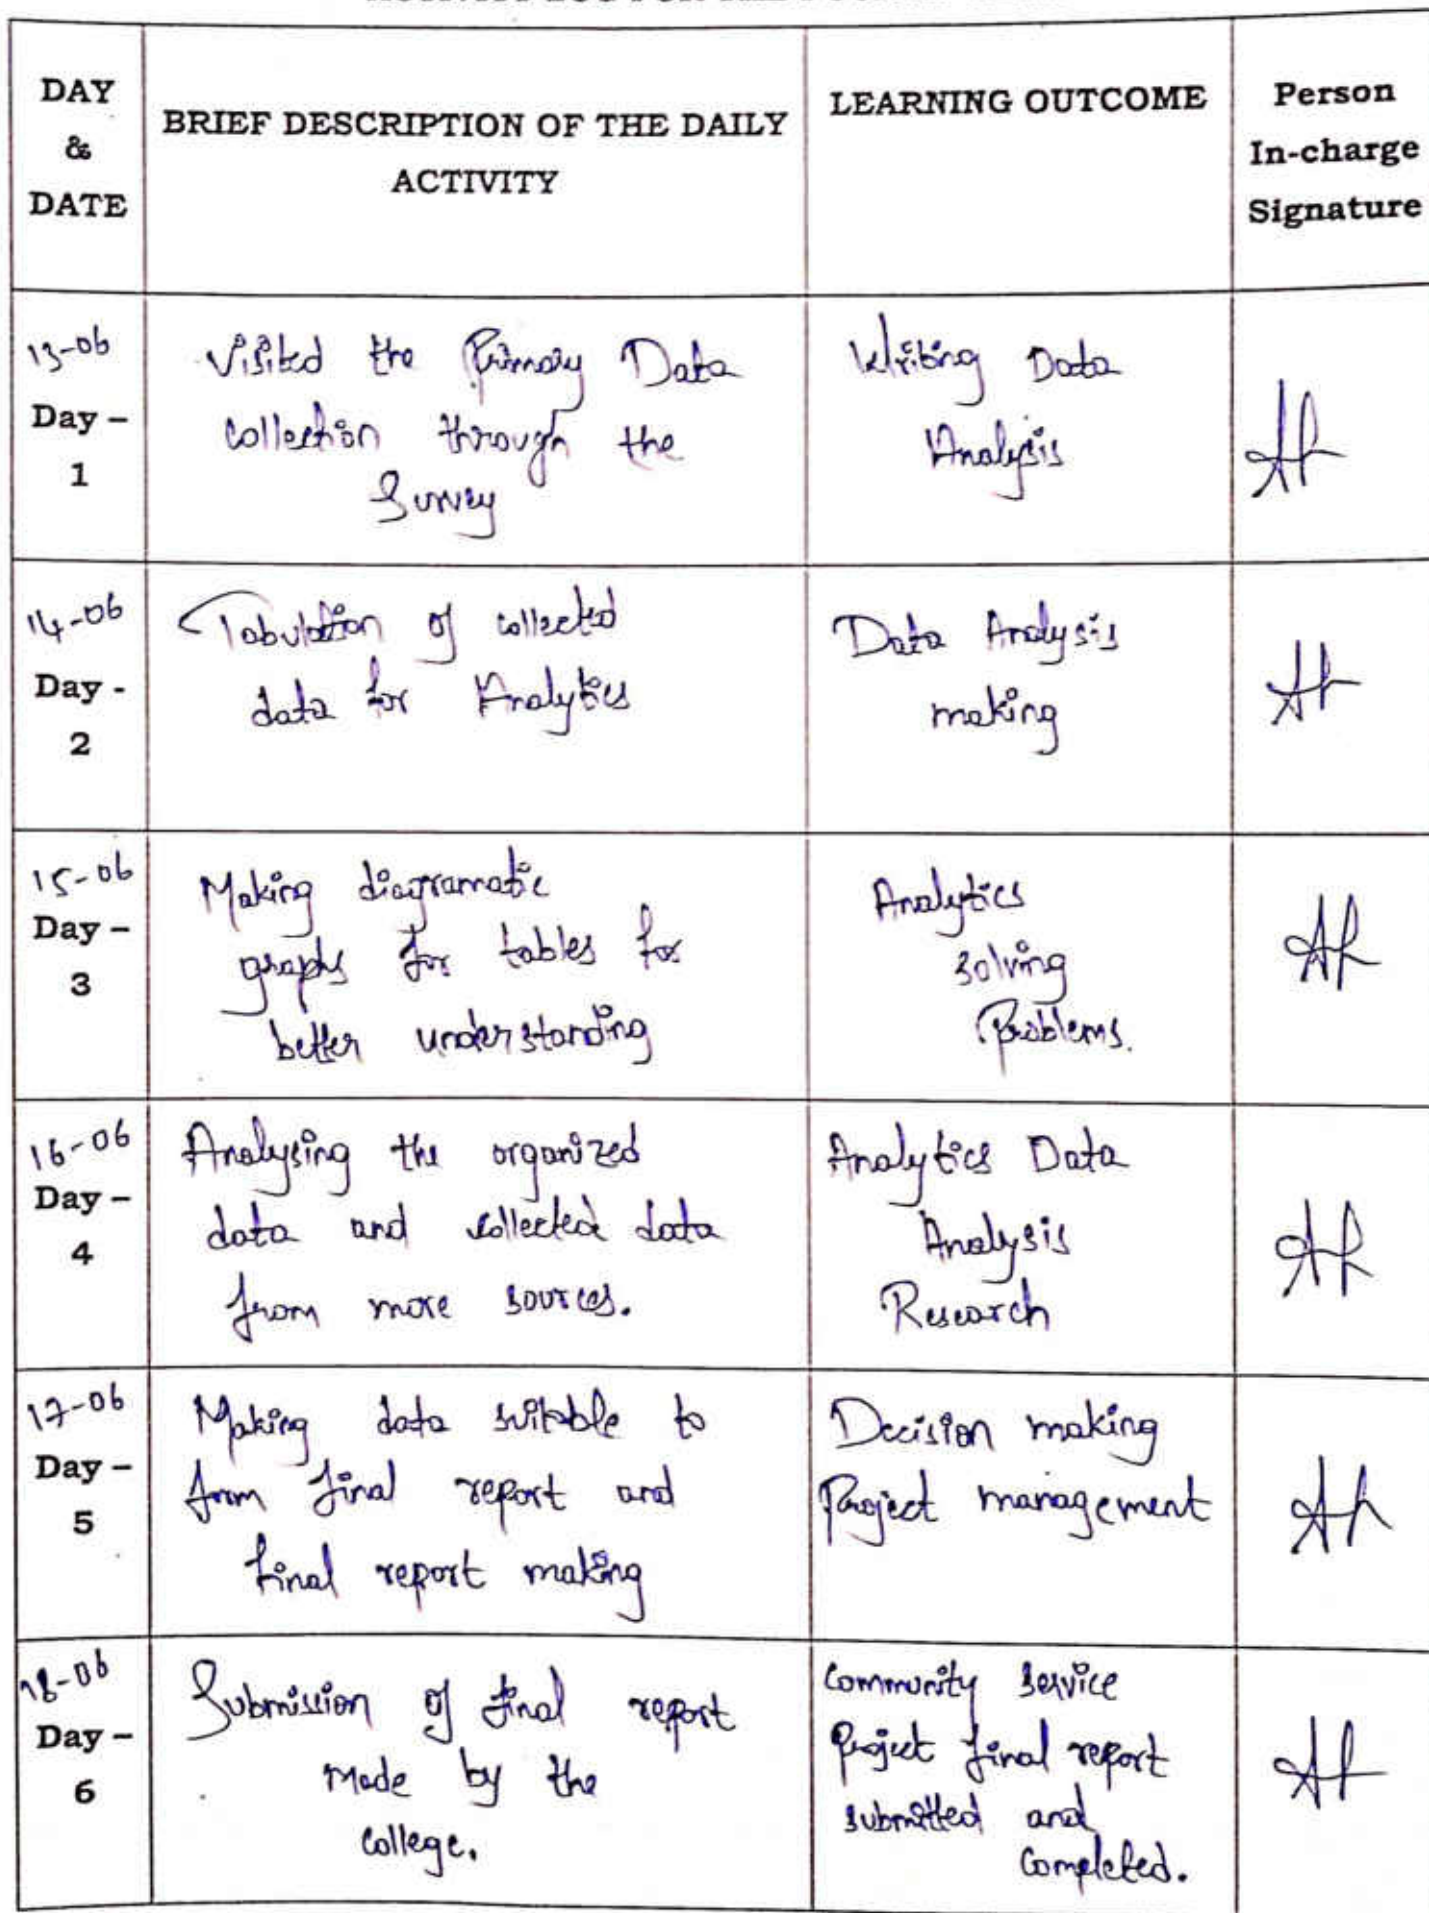 DAY
&
DATE
BRIEF DESCRIPTION OF THE DAILY
ACTIVITY
LEARNING OUTCOME
Person
In-charge
Signature
13-06
Day –
1
Visited the Primary Data
collection through the
Survey
Writing Data
Analysis
14-06
Day -
2
Tabulation of collected
data for Analytics
Data Analysis
making
15-06
Day –
3
Making diagramatic
graphs for tables for
better understanding
Analytics
solving
Problems.
16-06
Day –
4
Analysing the organized
data and collected data
from more sources.
Analytics Data
Analysis
Research
17-06
Day –
5
Making data suitable to
from final report and
final report making
Decision making
Project management
18-06
Day –
6
Submission of final report
made by the
college.
Community service
project final report
submitted and
completed.